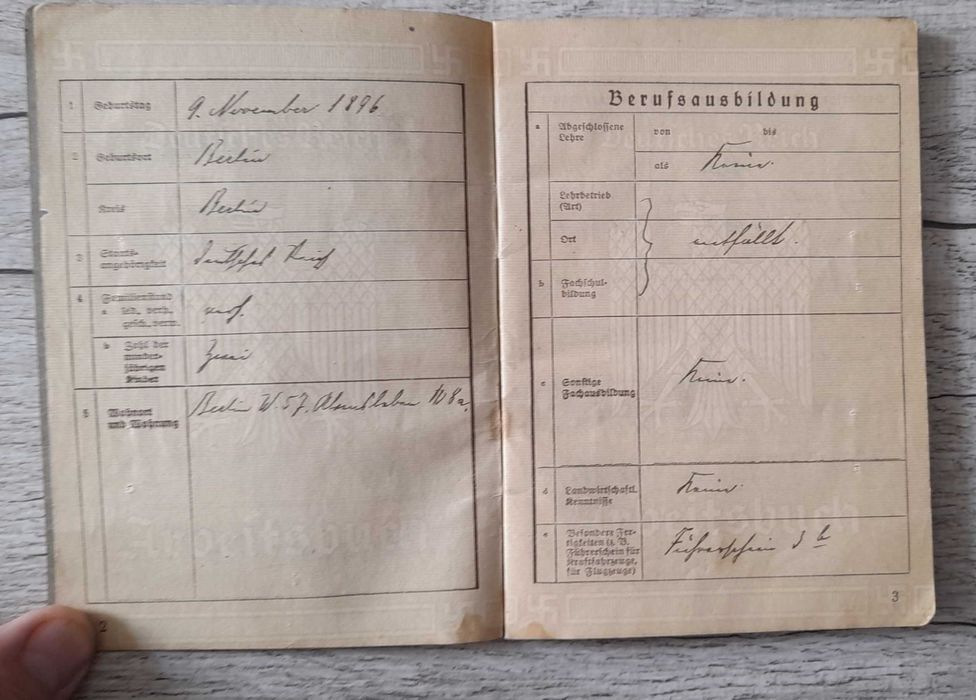 1 Geburtstag 9. November 1896
2 Geburtsort Berlin
Kreis Berlin
3 Staats-
angehörigkeit deutsches Reich
4 Familienstand
a led., verh.,
gesch., verw. verh.
b Zahl der
minder-
jährigen
Kinder Zwei
5 Wohnort
und Wohnung Berlin W. 57.
2
Berufsausbildung
a Abgeschlossene
Lehre von bis
als Keine.
Lehrbetrieb
(Art)
Ort entfällt.
b Fachschul-
bildung
c Sonstige
Fachausbildung Keine.
d Landwirtschaftl.
Kenntnisse Keine.
e Besondere Fer-
tigkeiten (z. B.
Führerschein für
Kraftfahrzeuge,
für Flugzeuge) Führerschein 3 b
3